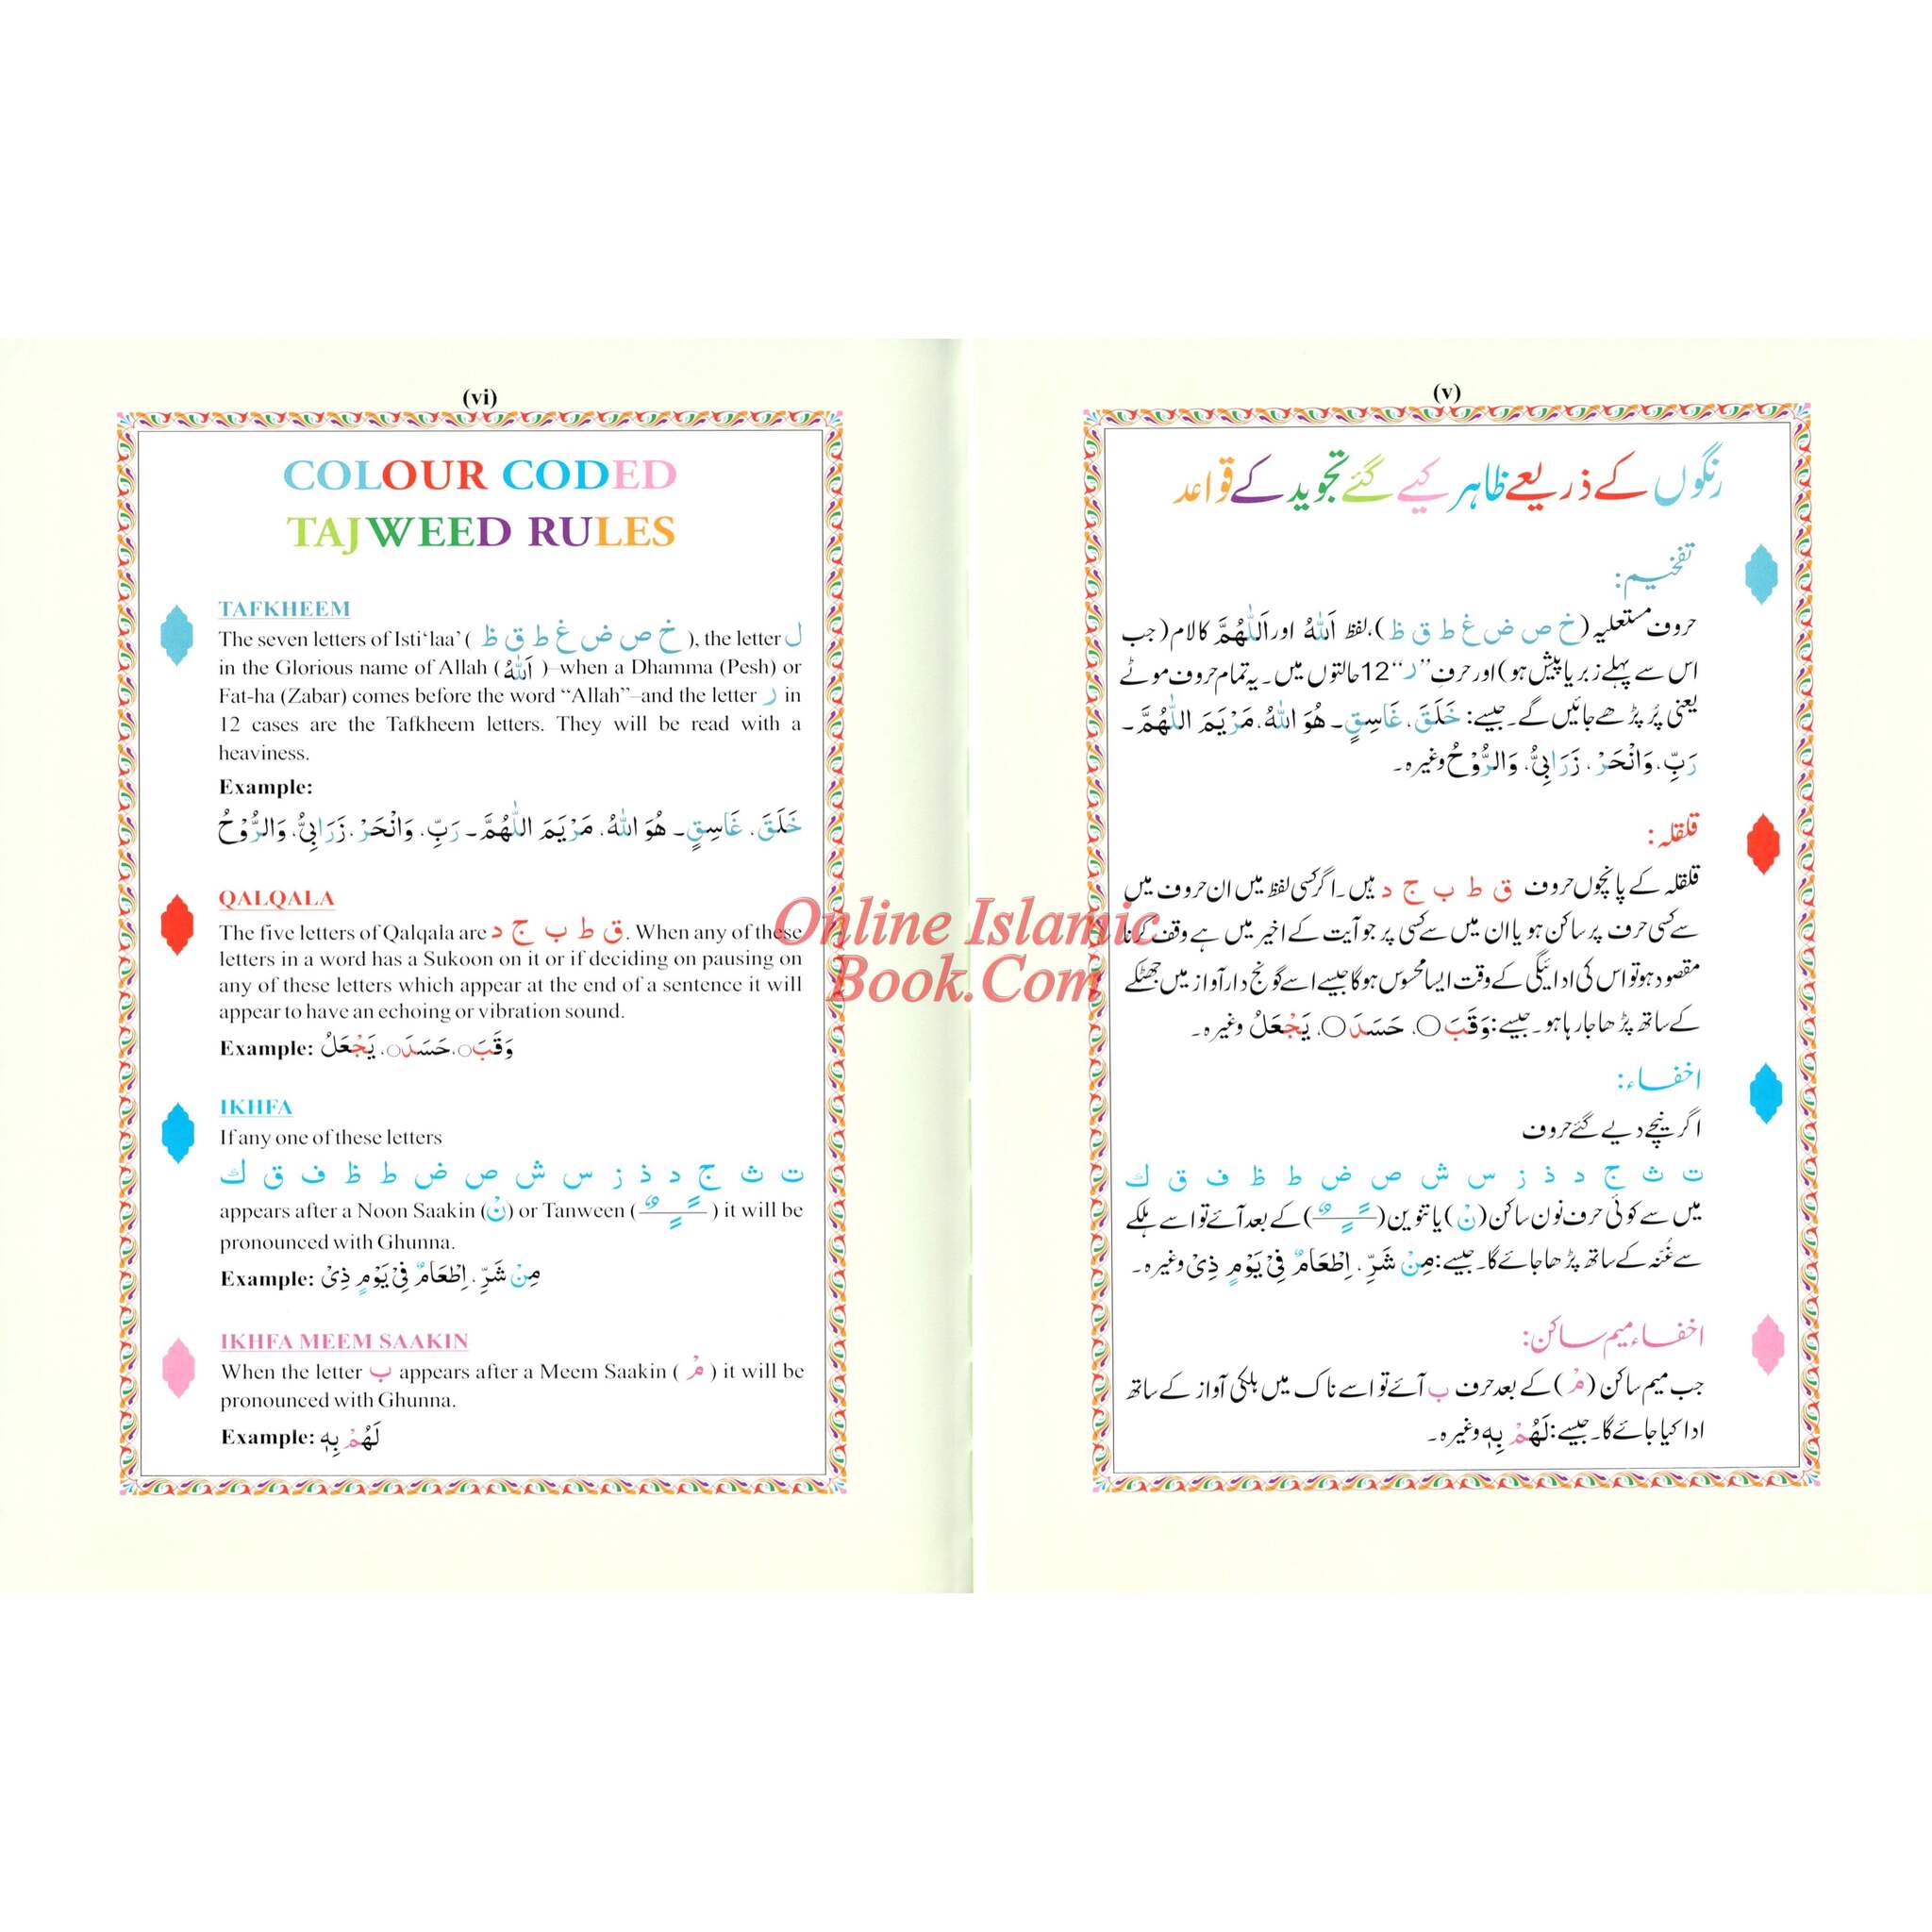 (vi)
COLOUR CODED
TAJWEED RULES
TAFKHEEM
The seven letters of Isti‘laa’ ( خ ص ض غ ط ق ظ ), the letter ل
in the Glorious name of Allah ( اَللّٰهُ )–when a Dhamma (Pesh) or
Fat-ha (Zabar) comes before the word “Allah”–and the letter ر in
12 cases are the Tafkheem letters. They will be read with a
heaviness.
Example:
خَلَقَ، غَاسِقٍ۔ هُوَ اللّٰهُ، مَرْيَمَ اللّٰهُمَّ۔ رَبِّ، وَانْحَرْ، زَرَابِيُّ، وَالرُّوْحُ
QALQALA
The five letters of Qalqala are ق ط ب ج د. When any of these
letters in a word has a Sukoon on it or if deciding on pausing on
any of these letters which appear at the end of a sentence it will
appear to have an echoing or vibration sound.
Example: وَقَبَ○، حَسَدَ○، يَجْعَلُ
IKHFA
If any one of these letters
ت ث ج د ذ ز س ش ص ض ط ظ ف ق ك
appears after a Noon Saakin (نْ) or Tanween ( ـًـٍـٌ ) it will be
pronounced with Ghunna.
Example: مِنْ شَرِّ، اِطْعَامٌ فِيْ يَوْمٍ ذِيْ
IKHFA MEEM SAAKIN
When the letter ب appears after a Meem Saakin ( مْ ) it will be
pronounced with Ghunna.
Example: لَهُمْ بِهٖ
(v)
رنگوں کے ذریعے ظاہر کیے گئے تجوید کے قواعد
تفخیم:
حروف مستعلیہ (خ ص ض غ ط ق ظ)، لفظ اَللّٰهُ اور اَللّٰهُمَّ کا لام (جب
اس سے پہلے زبر یا پیش ہو) اور حرفِ ’’ر‘‘ 12 حالتوں میں۔ یہ تمام حروف موٹے
یعنی پُر پڑھے جائیں گے۔ جیسے: خَلَقَ، غَاسِقٍ۔ هُوَ اللّٰهُ، مَرْيَمَ اللّٰهُمَّ۔
رَبِّ، وَانْحَرْ، زَرَابِيُّ، وَالرُّوْحُ وغیرہ۔
قلقلہ:
قلقلہ کے پانچوں حروف ق ط ب ج د ہیں۔ اگر کسی لفظ میں ان حروف میں
سے کسی حرف پر ساکن ہو یا ان میں سے کسی پر جو آیت کے اخیر میں ہے وقف کرنا
مقصود ہو تو اس کی ادائیگی کے وقت ایسا محسوس ہوگا جیسے اسے گونج دار آواز میں جھٹکے
کے ساتھ پڑھا جا رہا ہو۔ جیسے: وَقَبَ○، حَسَدَ○، يَجْعَلُ وغیرہ۔
اخفاء:
اگر نیچے دیے گئے حروف
ت ث ج د ذ ز س ش ص ض ط ظ ف ق ك
میں سے کوئی حرف نون ساکن (نْ) یا تنوین (ـًـٍـٌ) کے بعد آئے تو اسے ہلکے
سے غُنّہ کے ساتھ پڑھا جائے گا۔ جیسے: مِنْ شَرِّ، اِطْعَامٌ فِيْ يَوْمٍ ذِيْ وغیرہ۔
اخفاء میم ساکن:
جب میم ساکن (مْ) کے بعد حرف ب آئے تو اسے ناک میں ہلکی آواز کے ساتھ
ادا کیا جائے گا۔ جیسے: لَهُمْ بِهٖ وغیرہ۔
Online Islamic
Book.Com